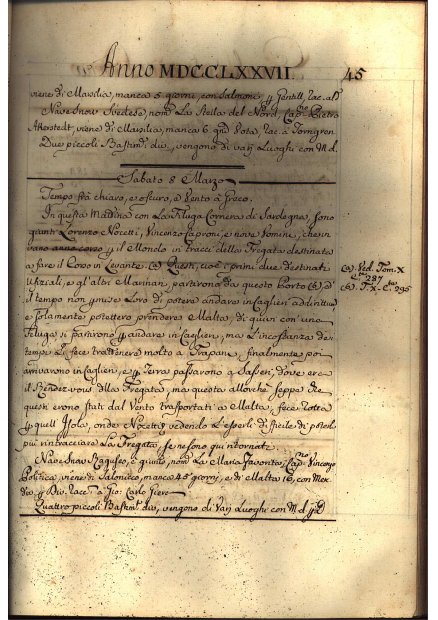 Anno MDCCLXXVII. 45
viene di Marsilia, manca 5 giorni, con Salmone, Gentill, Rac.
Nave Snow Svedese, nom. La Stella del Nord, Cap. Pietro
viene di Marsilia, manca 6 Rac. a
Due piccoli Bastim. div. vengono di varj Luoghi con M.d.
Sabato 8 Marzo
Tempo frà chiaro, e oscuro, a Vento à Greco.
In questa Mattina con La Filuga Corriera di Sardegna, sono
giunti Lorenzo Nocetti, Vincenzo Caproni, e nove Uomini, che
vano corso il Mondo in tracci della Fregata destinata
a fare il Corso in Levante. Questi, cioè i primi due destinati
Uffiziali, e gl'altri Marinari, partirono da questo Porto
il tempo non gli permise Loro di potere andare in Caglieri
e solamente potettero prendere Malta, di quivi con una
Feluga si partirono andare in Caglieri, ma L'incostanza de
tempi Le fece trattenere molto a Trapani, finalmente poi
arrivarono in Caglieri, e Terra passarono a Sasseri, dove era
il Rendez vous della Fregata, ma questa allorchè seppe che
questi erono stati dal Vento trasportati a Malta, fece rotta
quell' Isola, onde Nocetti vedendo L'esserli difficile di potere
più rintracciare La Fregata, se ne sono qui tornati.
Nave Snow Raguseo, è giunto, nom. La Maria Favorita, Cap. Vincenzo
Politica, viene di Salonicco, manca 45 giorni, e di Malta 16, con
Div. Racc. a Gio. Carlo
Quattro piccoli Bastim. div. vengono di Varj Luoghi con M.d.
Ved. Tom. X
287
T. X. C. 295